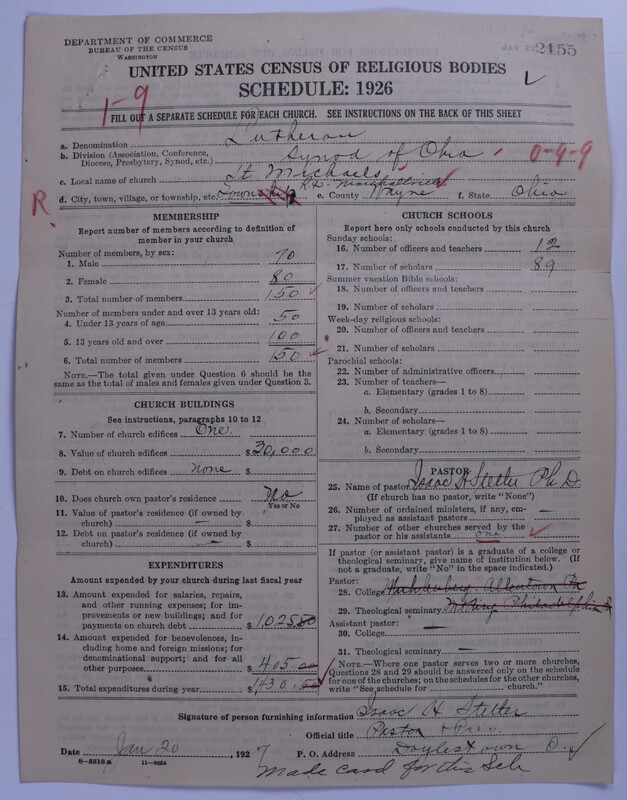 DEPARTMENT OF COMMERCE
BUREAU OF THE CENSUS
WASHINGTON
JAN 2155
UNITED STATES CENSUS OF RELIGIOUS BODIES
SCHEDULE: 1926
1-9
FILL OUT A SEPARATE SCHEDULE FOR EACH CHURCH. SEE INSTRUCTIONS ON THE BACK OF THIS SHEET
a. Denomination Lutheran
b. Division (Association, Conference, Diocese, Presbytery, Synod, etc.) Synod of Ohio 0-4-9
c. Local name of church St Michaels
R.D. Marshallville
R d. City, town, village, or township, etc. Township e. County Wayne f. State Ohio
MEMBERSHIP
Report number of members according to definition of member in your church
Number of members, by sex:
1. Male 70
2. Female 80
3. Total number of members 150
Number of members under and over 13 years old:
4. Under 13 years of age 50
5. 13 years old and over 100
6. Total number of members 150
NOTE.—The total given under Question 6 should be the same as the total of males and females given under Question 3.
CHURCH BUILDINGS
See instructions, paragraphs 10 to 12
7. Number of church edifices One
8. Value of church edifices $30,000
9. Debt on church edifices none $
10. Does church own pastor's residence No
Yes or No
11. Value of pastor's residence (if owned by church) — $
12. Debt on pastor's residence (if owned by church) — $
EXPENDITURES
Amount expended by your church during last fiscal year
13. Amount expended for salaries, repairs, and other running expenses; for improvements or new buildings; and for payments on church debt $1025.80
14. Amount expended for benevolences, including home and foreign missions; for denominational support; and for all other purposes $405.00
15. Total expenditures during year $1430.80
CHURCH SCHOOLS
Report here only schools conducted by this church
Sunday schools:
16. Number of officers and teachers 12
17. Number of scholars 89
Summer vacation Bible schools:
18. Number of officers and teachers
19. Number of scholars
Week-day religious schools:
20. Number of officers and teachers
21. Number of scholars
Parochial schools:
22. Number of administrative officers
23. Number of teachers—
a. Elementary (grades 1 to 8)
b. Secondary
24. Number of scholars—
a. Elementary (grades 1 to 8)
b. Secondary
PASTOR
25. Name of pastor Isaac H Stetler Ph.D.
(If church has no pastor, write "None")
26. Number of ordained ministers, if any, employed as assistant pastors —
27. Number of other churches served by the pastor or his assistants one
If pastor (or assistant pastor) is a graduate of a college or theological seminary, give name of institution below. (If not a graduate, write "No" in the space indicated.)
Pastor:
28. College Muhlenberg Allentown Pa
29. Theological seminary Mt Airy Philadelphia Pa
Assistant pastor:
30. College —
31. Theological seminary —
NOTE.—Where one pastor serves two or more churches, Questions 28 and 29 should be answered only on the schedule for one of the churches; on the schedules for the other churches, write "See schedule for church."
Signature of person furnishing information Isaac H Stetler
Official title Pastor
Date Jan 20, 1927 P. O. Address Doylestown O.
8-5518a 11-9034
Made card for this Sch